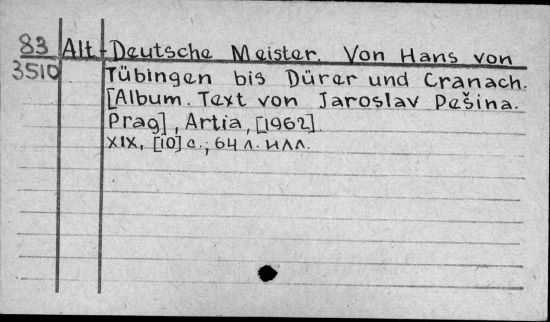 83 Alt-Deutsche Meister. Von Hans von
3510 Tübingen bis Dürer und Cranach.
[Album. Text von Jaroslav Pešina.
Prag], Artia, [1962].
XIX, [10] с.; 64 л. илл.